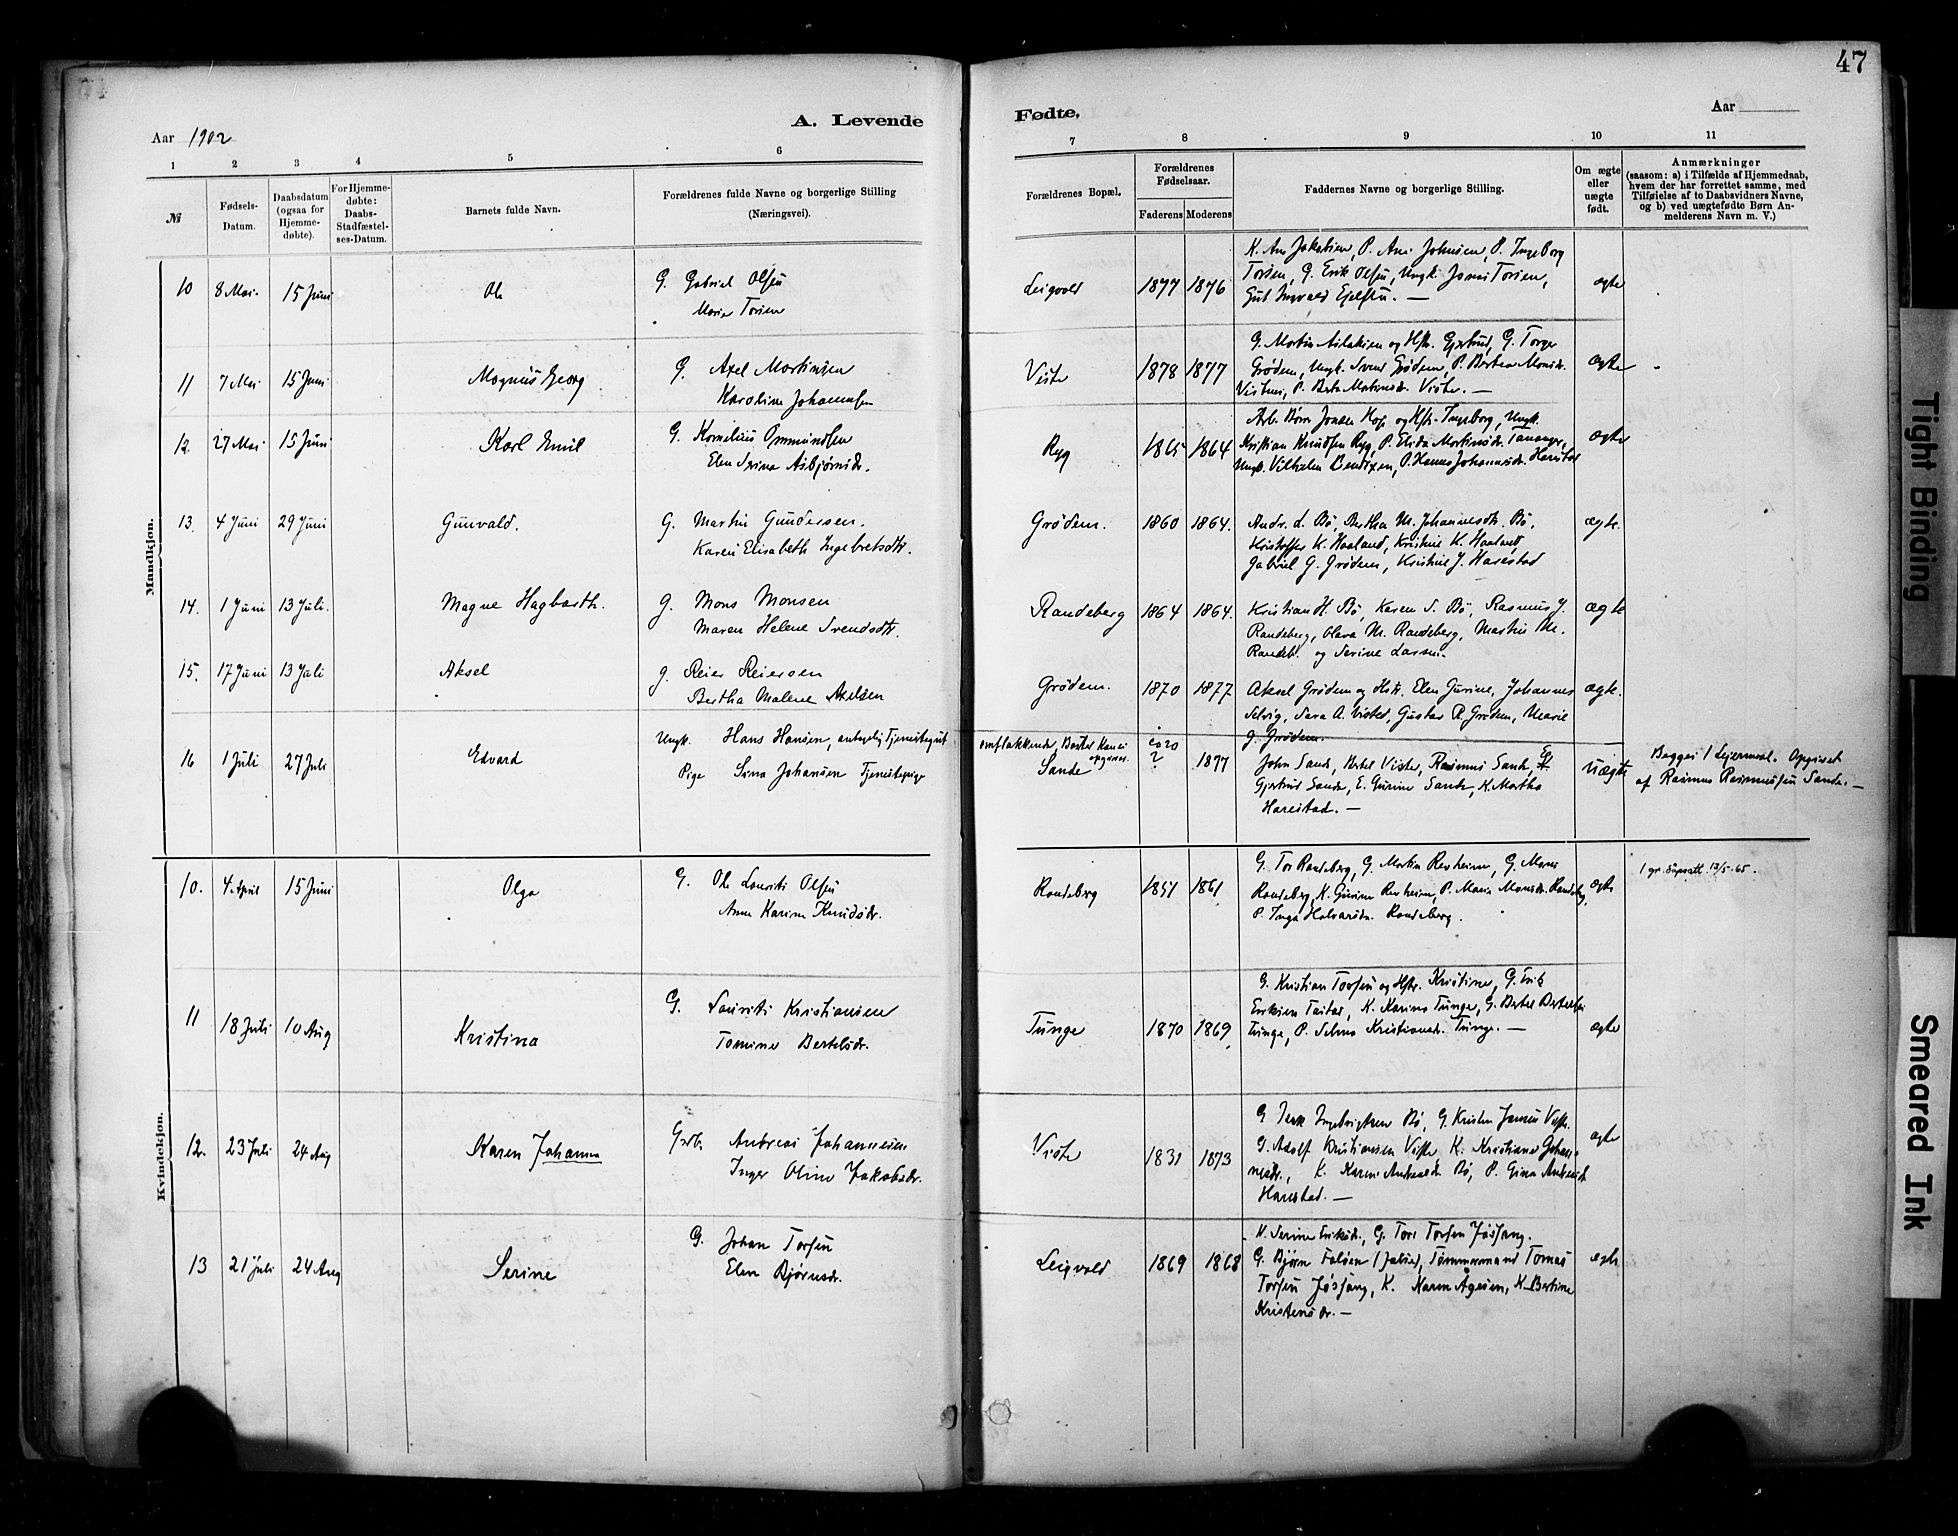 47
A. Levende Fødte.
Aar 1902
Aar
1 2 3 4 5 6 7 8 9 10 11
№
Fødsels-Datum.
Daabsdatum (ogsaa for Hjemme-døbte).
For Hjemme-døbte: Daabs-Stadfæstel-ses-Datum.
Barnets fulde Navn.
Forældrenes fulde Navne og borgerlige Stilling (Næringsvei).
Forældrenes Bopæl.
Forældrenes Fødselsaar.
Faderens Moderens
Faddernes Navne og borgerlige Stilling.
Om ægte eller uægte født.
Anmærkninger
(saasom: a) i Tilfælde af Hjemmedaab,
hvem der har forrettet samme, med
Tilføielse af to Daabsvidners Navne,
og b) ved uægtefødte Børn An-
melderens Navn m. V.)
Mandkjøn.
10 8 Mai. 15 Juni Ole G. Gabriel Olsen Leigvold 1877 1876 ægte
Maria Torsen
K. Ane Jakobsen, P. Ane Johnsen, P. Ingeborg
Torsen, G. Erik Olsen, Ungk. Jonas Torsen,
Gut Ingvald Ejelsen. —
11 7 Mai 15 Juni Magnus Georg G. Axel Martinsen Viste 1878 1877 ægte
Karoline Johannesen
G. Martin Aslaksen og Hstr. Gjertrud, G. Torger
Grødem, Ungk. Svend Grødem, P. Bertea Monsdr.
Vistnes, P. Berta Martinsdr. Viste. —
12. 27 Mai 15 Juni Karl Emil G. Kornelius Ommundsen Ryg 1865 1864 ægte
Elen Serina Asbjørnsdr.
Arb. Børre Jonsen Hop og Hstr. Ingeborg, Ungk.
Kristian Knudsen Ryg, P. Elida Martinsdr. Tananger,
Ungk. Vilhelm Bendixen, P. Hanna Johannesdr. Harestad
13. 4 Juni 29 Juni Gunvald. G. Martin Gundersen. Grødem. 1860 1864. ægte.
Karen Elisabeth Ingebretsdtr.
Andr. L. Bø, Bertha M. Johannesdtr. Bø,
Kristoffer K. Haaland, Kristine K. Haaland,
Gabriel G. Grødem, Kristine J. Harestad
14. 1 Juni 13 Juli. Magne Hagbarth. g. Mons Monsen Randeberg 1864 1864. ægte
Maren Helene Svendsdtr.
Kristian H. Bø, Karen S. Bø, Rasmus J.
Randeberg, Olava M. Randeberg, Martin M.
Randeb. og Serine Larsen.
15. 17 Juni 13 Juli Aksel g. Reier Reiersen Grødem. 1870 1877 ægte.
Bertha Malene Axelsen
Aksel Grødem og Hstr. Elen Gurine, Johannes
Selvig, Sara A. Visted, Gustav R. Grødem, Marie
J. Grødem.
16 1 Juli 27 Juli Edvard Ungk. Hans Hansen, antagelig Tjenestegut
omflakkende,
Pige Sina Johansen Tjenestepige Sande ? 1877 uægte
John Sande, Bertel Viste, Rasmus Sande
Gjertrud Sande, E. Gurine Sande, K. Martha
Harestad. —
Begges 1 Leiermaal. Opgivet
af Rasmus Rasmussen Sande. —
Kvindekjøn.
10. 4 April 15 Juni Olga G. Ole Lauritz Olsen Randeberg 1851 1861 ægte
Anne Karine Knudsdr.
G. Tor Randeberg, G. Martin Revheim, G. Mons
Randeberg, K. Gurine Revheim, P. Maria Monsdr. Randeberg,
P. Inga Halvorsdr. Randeberg.
1 gr. auratt. 13/5-65.
11 18 Juli 10 Aug Kristina G. Lauritz Kristiansen Tunge 1870 1869 ægte
Tomine Bertelsdr.
G. Kristian Torsen og Hstr. Kristine, G. Erik
Eriksen Tastad, K. Karina Tunge, G. Bertel Bertelsen
Tunge, P. Selma Kristiansdr. Tunge. —
12. 23 Juli 24 Aug Karen Johanna Grb. Andreas Johannesen Viste 1831 1873 ægte
Inger Oline Jakobsdr.
G. Ingebrigtsen Bø, G. Kristen Jansen Viste.
G. Adolf Kristiansen Viste, K. Kristiane Johan-
nesdr., K. Karen Andreasdr. Bø, P. Gina Andreasdr
Harestad. —
13 21 Juli 24 Aug Serine G. Johan Torsen Leigvold 1869 1868 ægte
Elen Bjørnsdr.
K. Serine Eriksdr., G. Tore Torsen Jøssang.
G. Bjørn Falsen, Tømmermand Tomas
Torsen Jøssang, K. Karen Agesen, K. Bertine
Kristensdr. —
Tight Binding
Smeared Ink